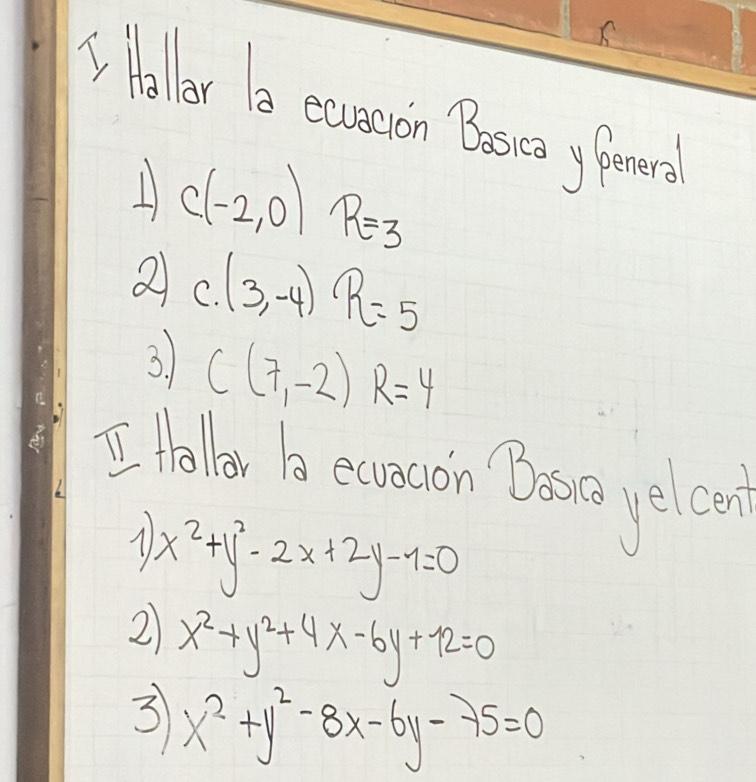 I Hallar la ecuación Basica y General
1) C.(-2,0) R=3
2) C.(3,-4) R=5
3.) C (7,-2) R=4
II Hallar la ecuación Basica y el cent
1) x²+y²-2x+2y-1=0
2) x²+y²+4x-6y+12=0
3) x²+y²-8x-6y-75=0